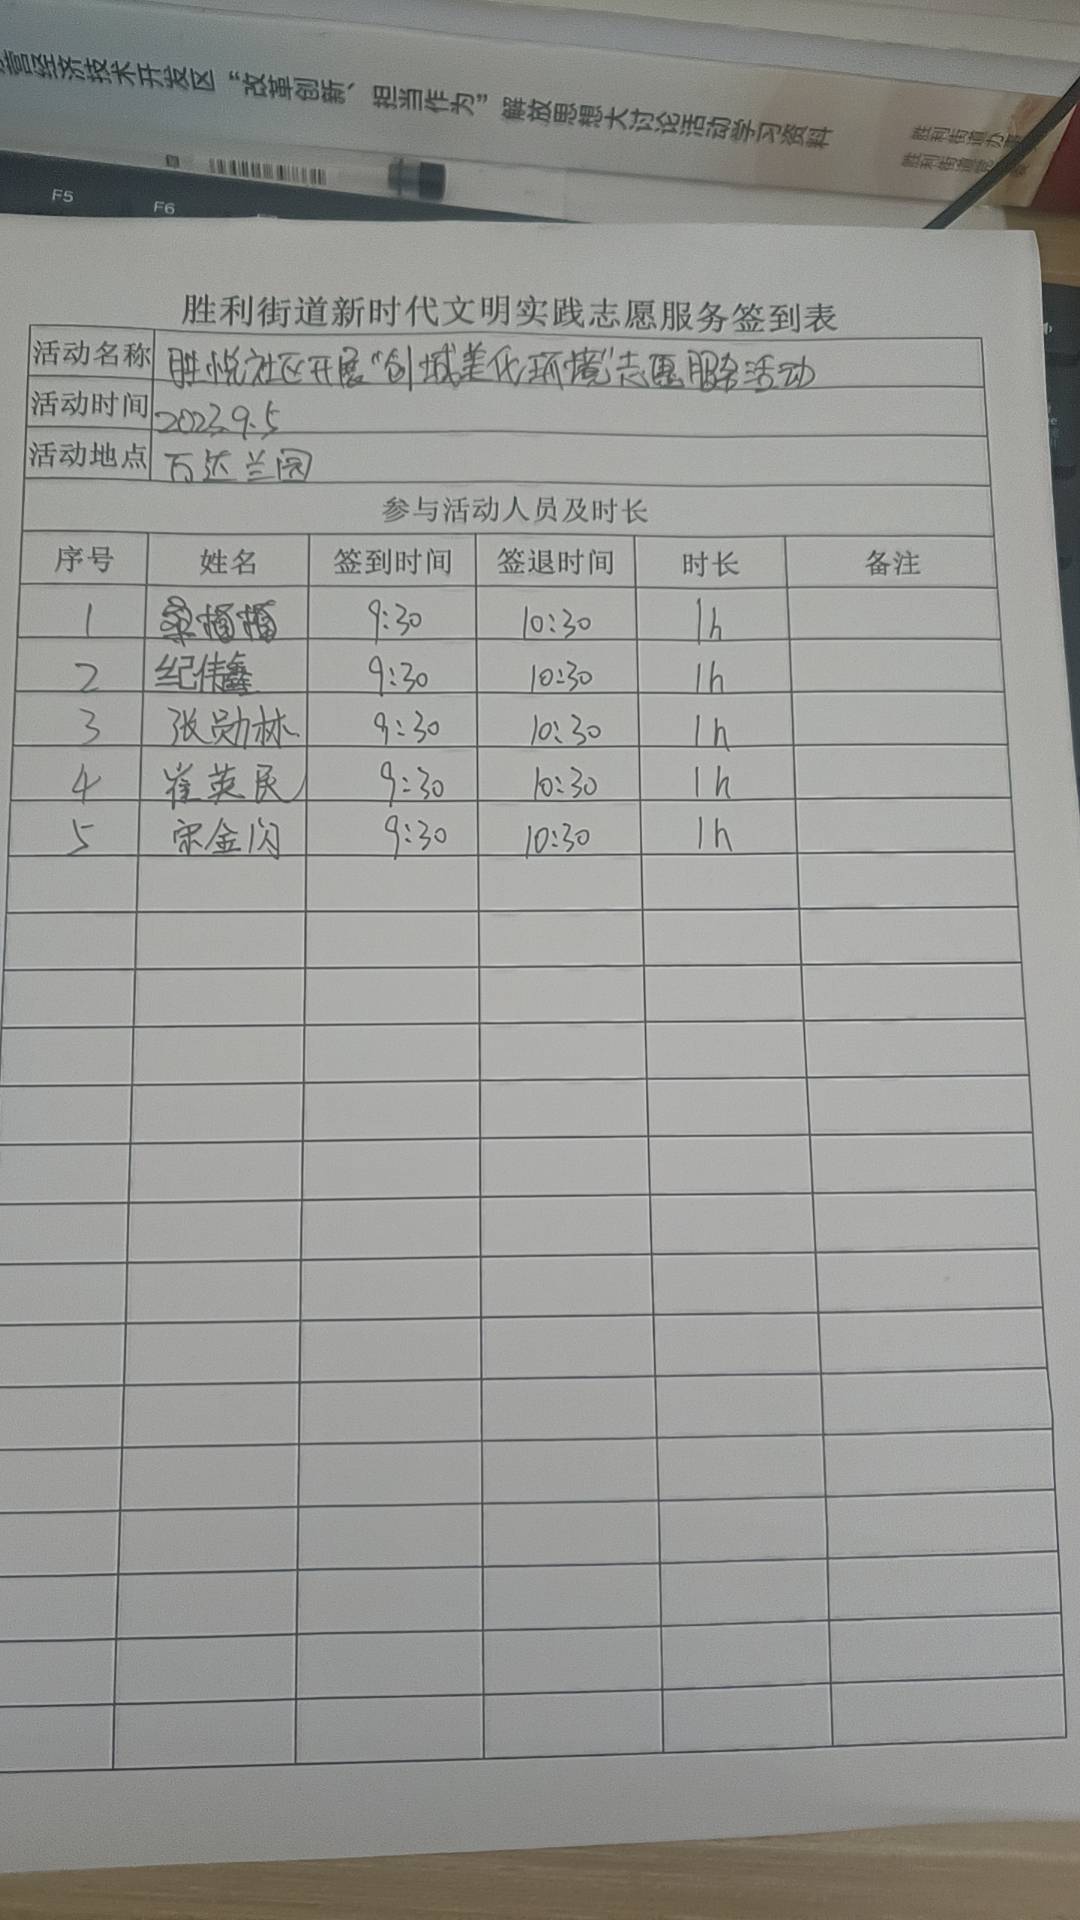 营经济技术开发区“改革创新、担当作为”解放思想大讨论活动学习资料
胜利街道办
胜利街道党
F5
F6
胜利街道新时代文明实践志愿服务签到表
活动名称 胜悦社区开展“创城美化环境”志愿服务活动
活动时间 2023.9.5
活动地点 万达兰园
参与活动人员及时长
序号 姓名 签到时间 签退时间 时长 备注
1 9:30 10:30 1h
2 纪伟鑫 9:30 10:30 1h
3 张勋林 9:30 10:30 1h
4 崔英民 9:30 10:30 1h
5 宋金闪 9:30 10:30 1h